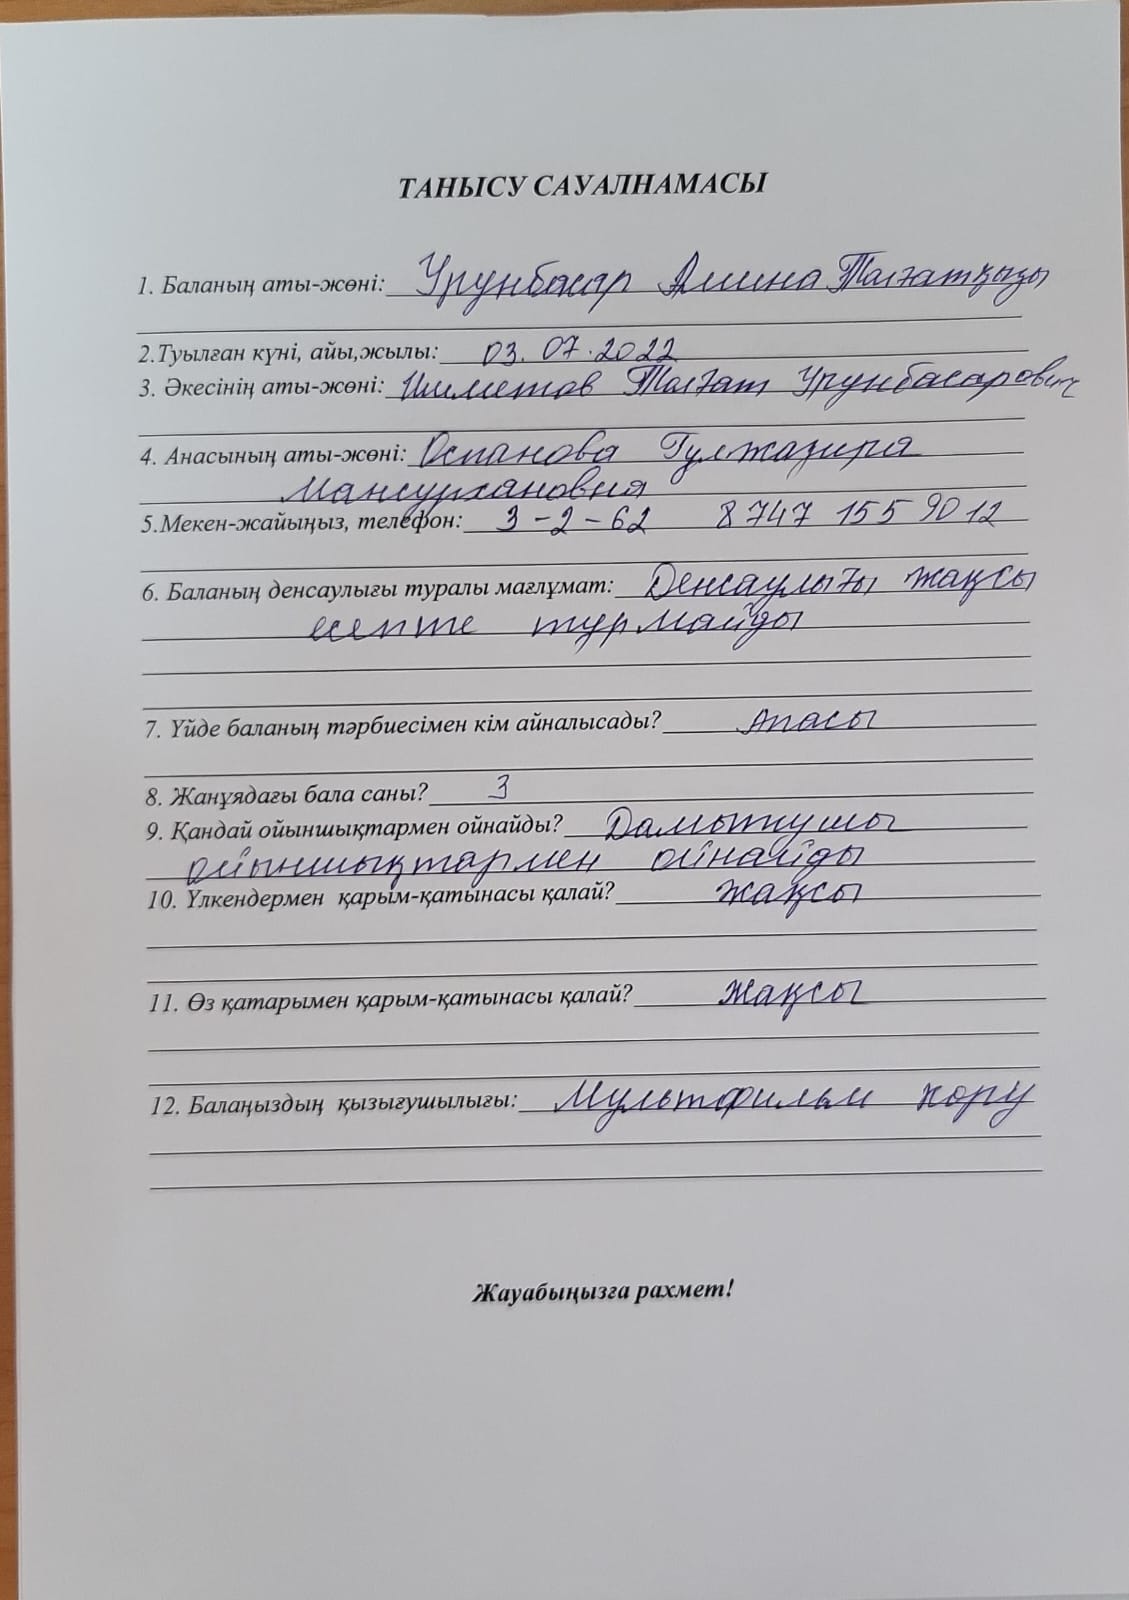 ТАНЫСУ САУАЛНАМАСЫ
1. Баланың аты-жөні: Урунбасар Амина Талғатқызы
2.Туылған күні, айы,жылы: 03.07.2022
3. Әкесінің аты-жөні: Талғат Урунбасарович
4. Анасының аты-жөні: Оспанова Гулжазира
Мансурхановна
5.Мекен-жайыңыз, телефон: 3-2-62 8 747 155 90 12
6. Баланың денсаулығы туралы мағлұмат: Денсаулығы жақсы
есепте турмайды
7. Үйде баланың тәрбиесімен кім айналысады? Апасы
8. Жанұядағы бала саны? 3
9. Қандай ойыншықтармен ойнайды? Дамытушы
ойыншықтармен ойнайды
10. Үлкендермен қарым-қатынасы қалай? жақсы
11. Өз қатарымен қарым-қатынасы қалай? жақсы
12. Балаңыздың қызығушылығы: Мультфильм көру
Жауабыңызға рахмет!